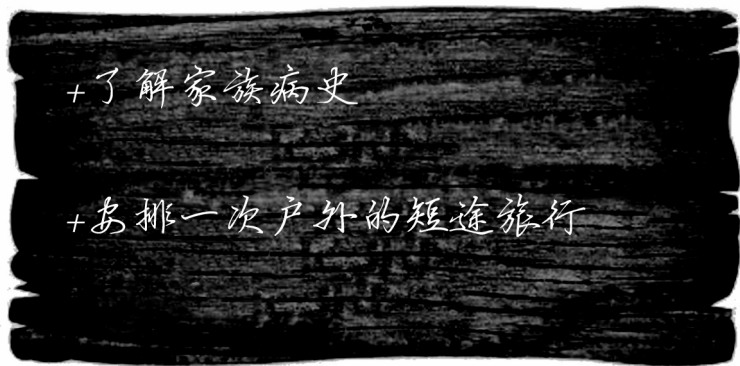 +了解家族病史
+安排一次户外的短途旅行